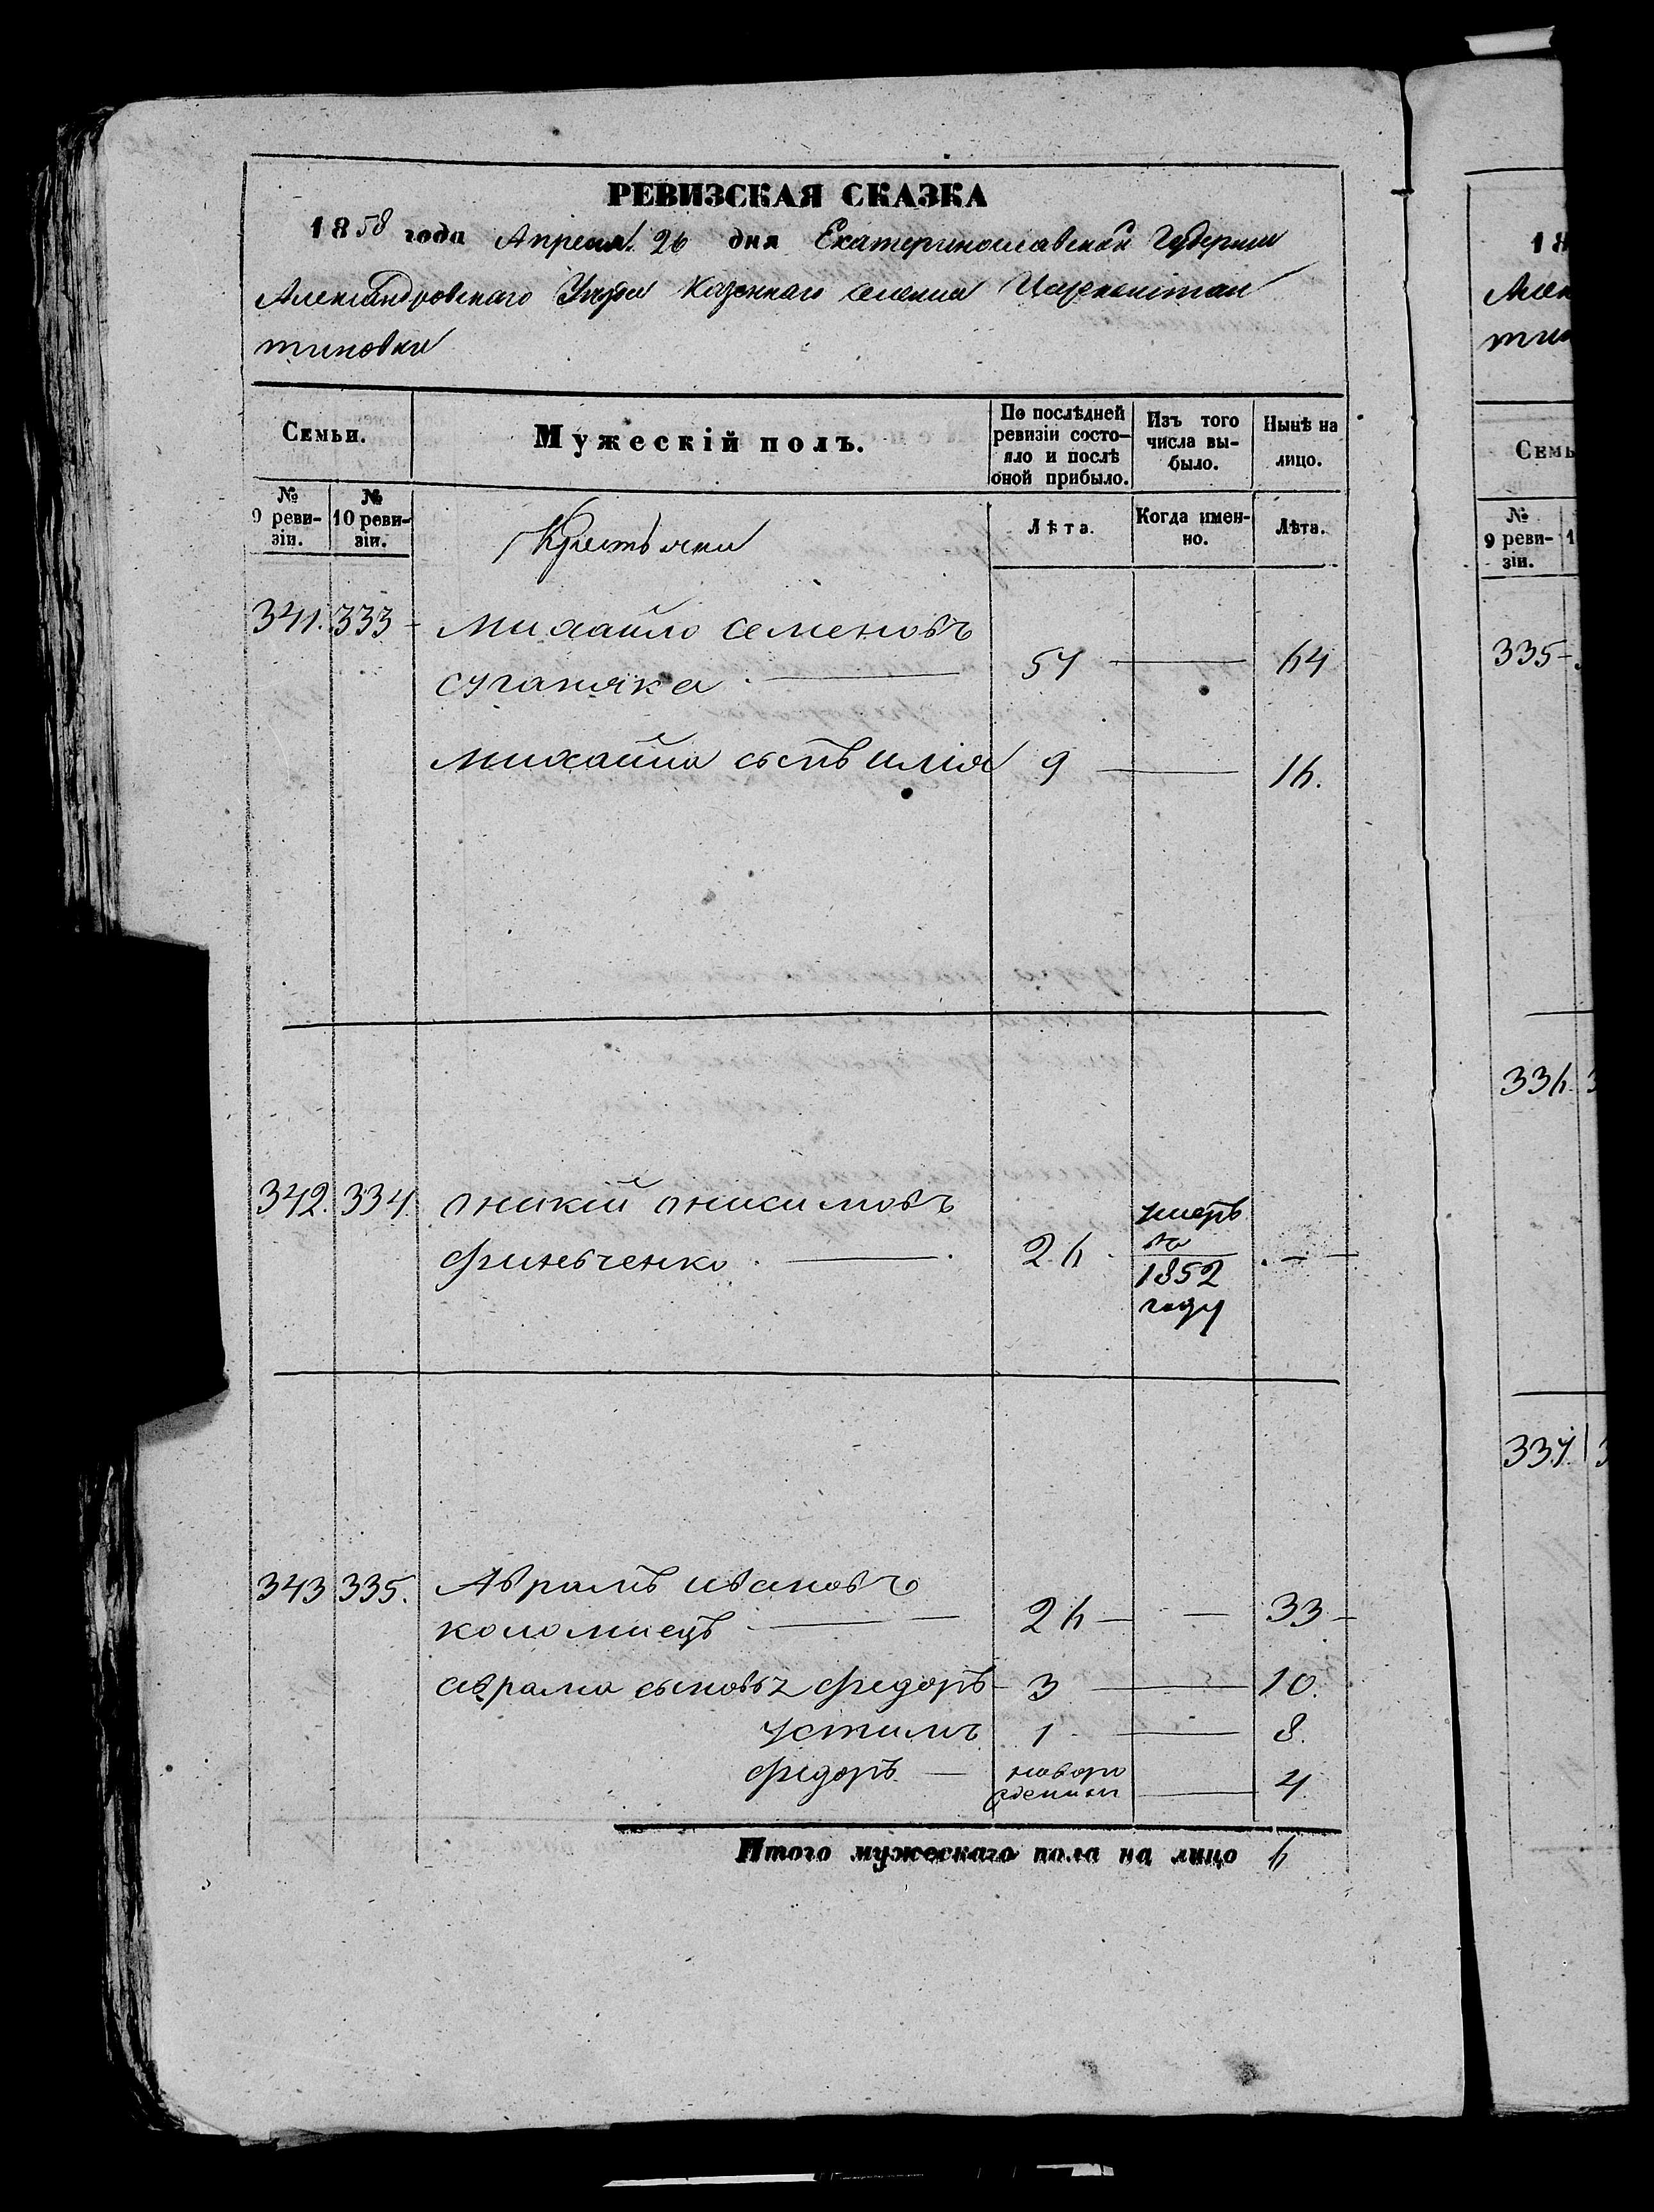 РЕВИЗСКАЯ СКАЗКА
1858 года Апреля 26 дня Екатеринославской Губернии
Александровскаго Уезда Казеннаго селения Цареконстан
тиновки
Семьи. Мужескій полъ. По послѣдней ревизіи состояло и послѣ оной прибыло. Изъ того числа выбыло. Нынѣ на лицо.
№ 9 ревизіи. № 10 ревизіи. Крестьяне Лѣта. Когда именно. Лѣта.
341. 333 Михайло Семеновъ
сугакъка 57 — 64
Михайла сынъ илия 9 — 16.
342. 334. оникій онисимовъ
финьченко. 26. умеръ
во
1852
году —
343 335. Аврамъ ивановъ
коломиецъ 26 — 33
аврама сыновъя федоръ 3 — 10.
устимъ 1 — 8.
федоръ — новоро
жденый — 4
Итого мужескаго пола на лицо 6
18
Алек
тин
Семь
№
9 реви-
зіи.
335
336
337